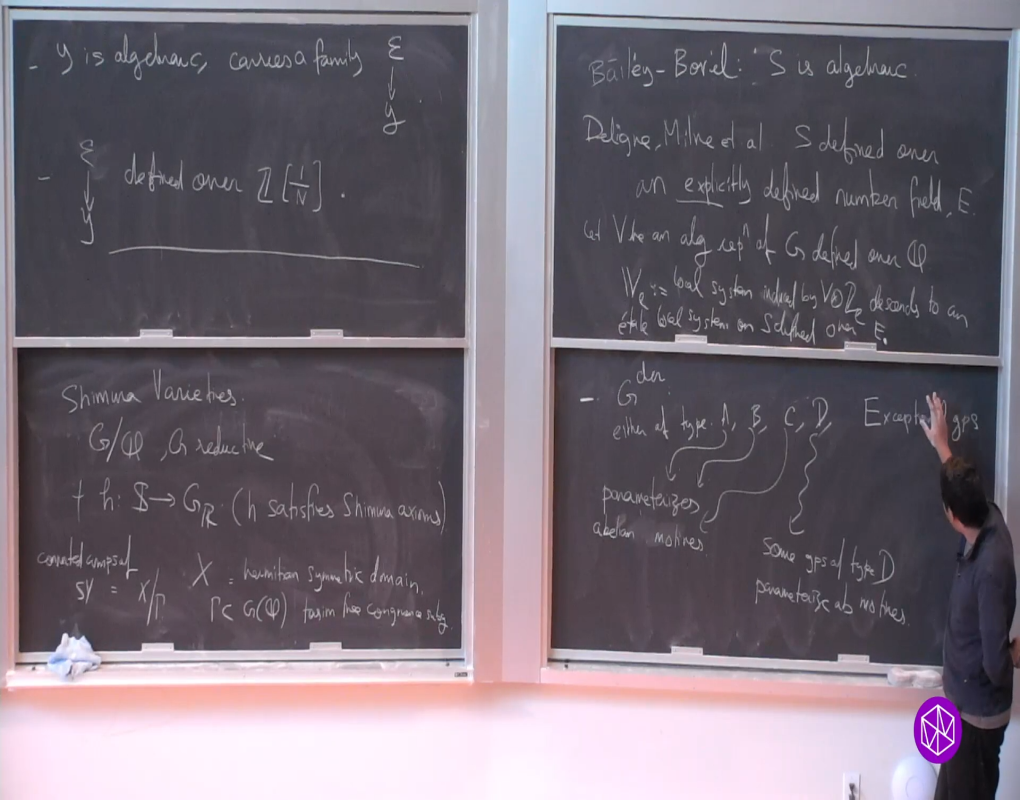 - Y is algebraic, carries a family E
↓
Y
- E
↓
Y
defined over ℤ[1/N].
Shimura Varieties.
G/ℚ, G reductive
+ h: 𝕊 → G_ℝ (h satisfies Shimura axioms)
connected comps of
SV = X/Γ
X = hermitian symmetric domain,
Γ ⊂ G(ℚ) torsion free congruence subg.
Bailey-Borel: S is algebraic.
Deligne, Milne et al S defined over
an explicitly defined number field, E.
Let V be an alg repⁿ of G defined over ℚ
𝕍_ℓ := local system induced by V⊗ℤ_ℓ descends to an
étale local system on S defined over E.
- G^der
either of type A, B, C, D,
gps
parameterizes
abelian motives
some gps of type D
parameterize ab motives.